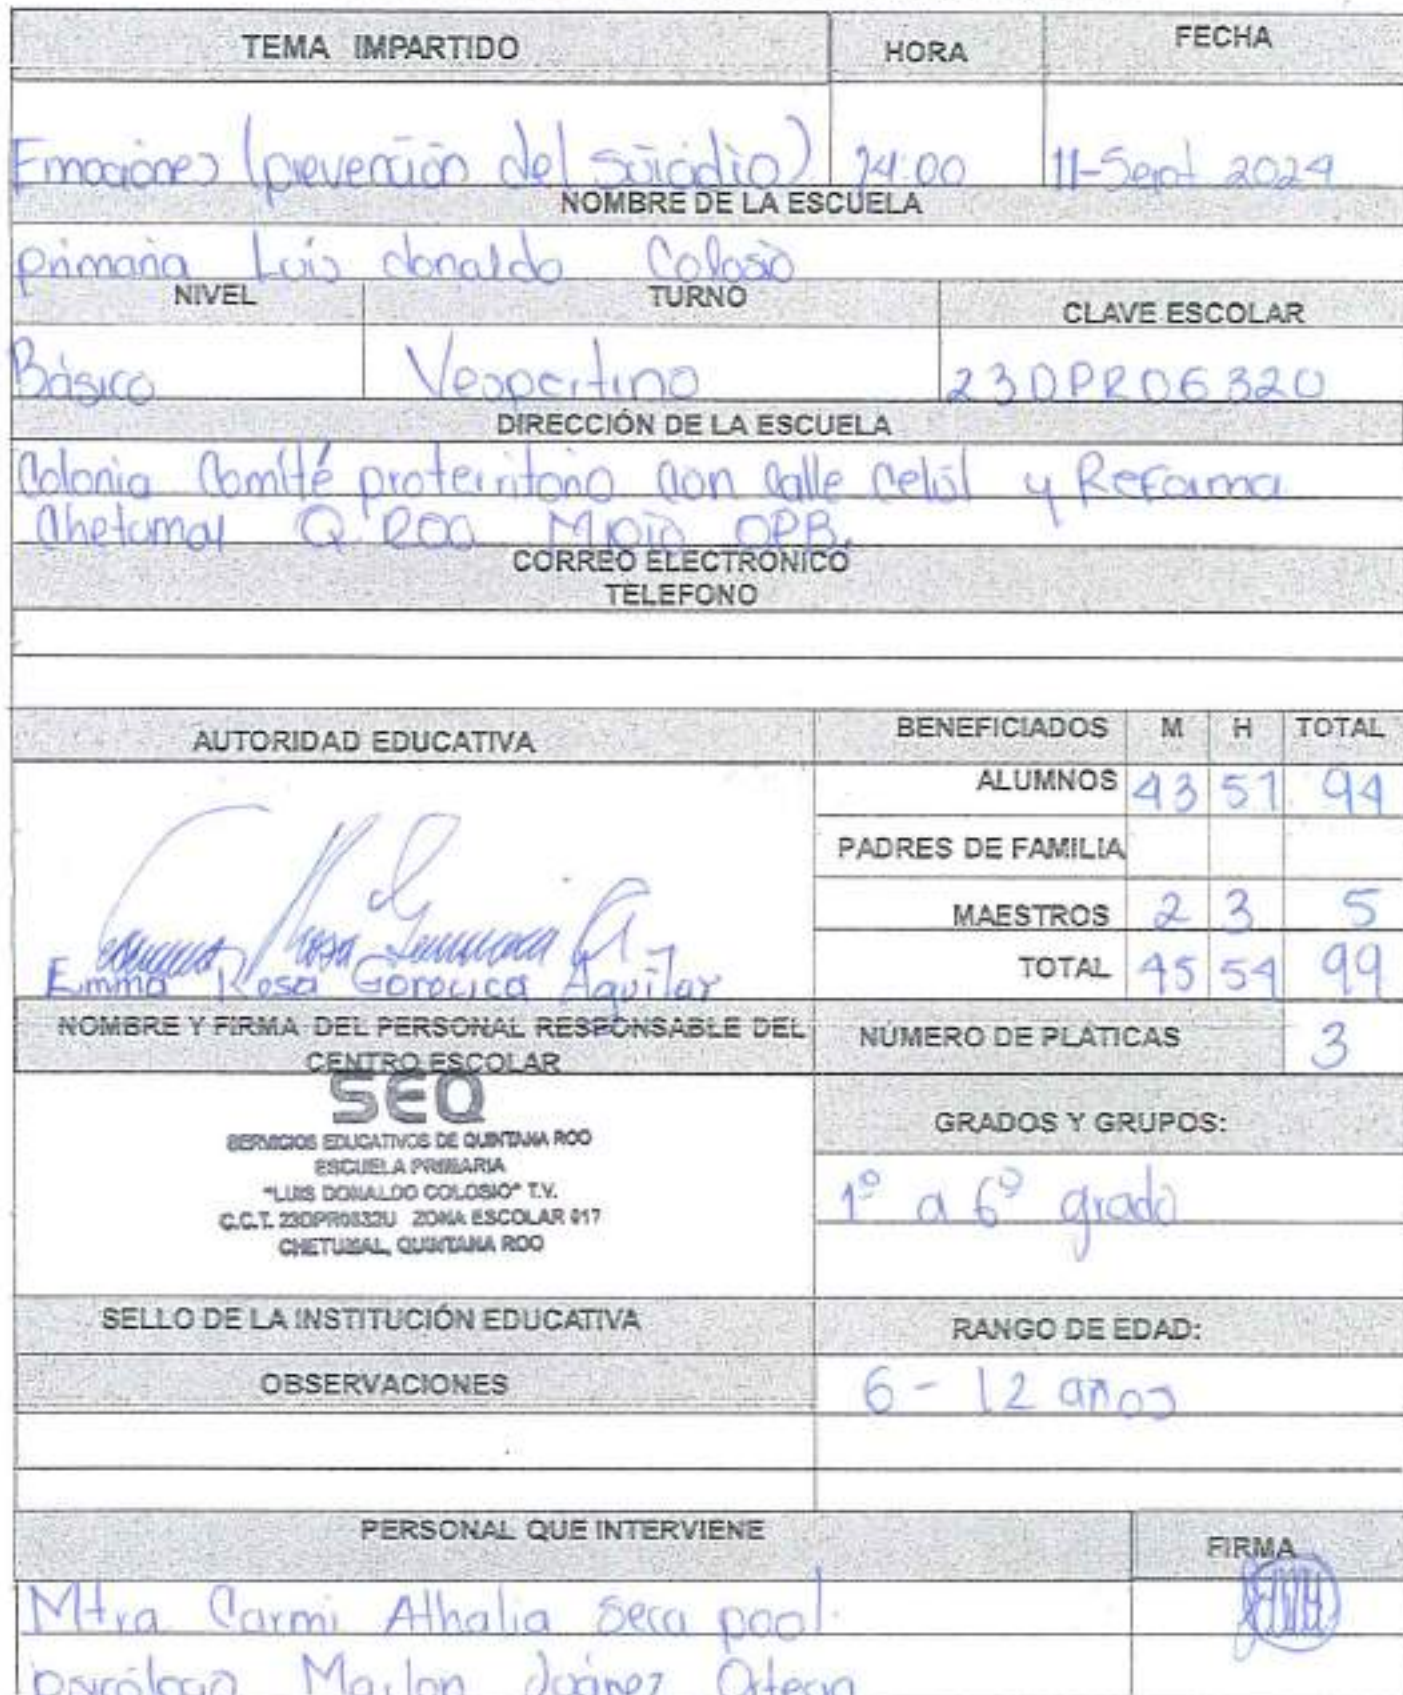 TEMA IMPARTIDO HORA FECHA
Emociones (prevención del suicidio) 14:00 11-Sept 2024
NOMBRE DE LA ESCUELA
primaria Luis donaldo Colosio
NIVEL TURNO CLAVE ESCOLAR
Básico Vespertino 23DPR0632U
DIRECCIÓN DE LA ESCUELA
Colonia Comité proterritorio con calle Celul y Reforma
Chetumal Q. Roo Mpio OPB.
CORREO ELECTRONICO
TELEFONO
AUTORIDAD EDUCATIVA BENEFICIADOS M H TOTAL
ALUMNOS 43 51 94
PADRES DE FAMILIA
MAESTROS 2 3 5
Emma Rosa Gorocica Aguilar
TOTAL 45 54 99
NOMBRE Y FIRMA DEL PERSONAL RESPONSABLE DEL
CENTRO ESCOLAR
NÚMERO DE PLÁTICAS 3
SEQ
SERVICIOS EDUCATIVOS DE QUINTANA ROO
ESCUELA PRIMARIA
"LUIS DONALDO COLOSIO" T.V.
C.C.T. 23DPR0632U ZONA ESCOLAR 017
CHETUMAL, QUINTANA ROO
GRADOS Y GRUPOS:
1° a 6° grado
SELLO DE LA INSTITUCIÓN EDUCATIVA RANGO DE EDAD:
OBSERVACIONES 6 - 12 años
PERSONAL QUE INTERVIENE FIRMA
Mtra Carmi Athalia Seca pool.
psicólogo Marlon Juárez Ortega